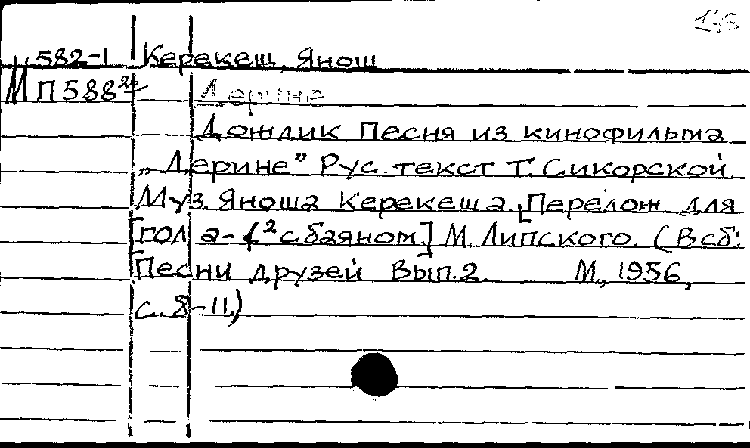 582-1 Керекеш, Янош
М П 588
Дерине
Дождик Песня из кинофильма
„Дерине" Рус. текст Т. Сикорской
Муз. Яноша Керекеша. Перелож для
[гол а- с баяном] М. Липского. (В сб:
Песни друзей Вып. 2 М., 1956,
с. 8-11.)